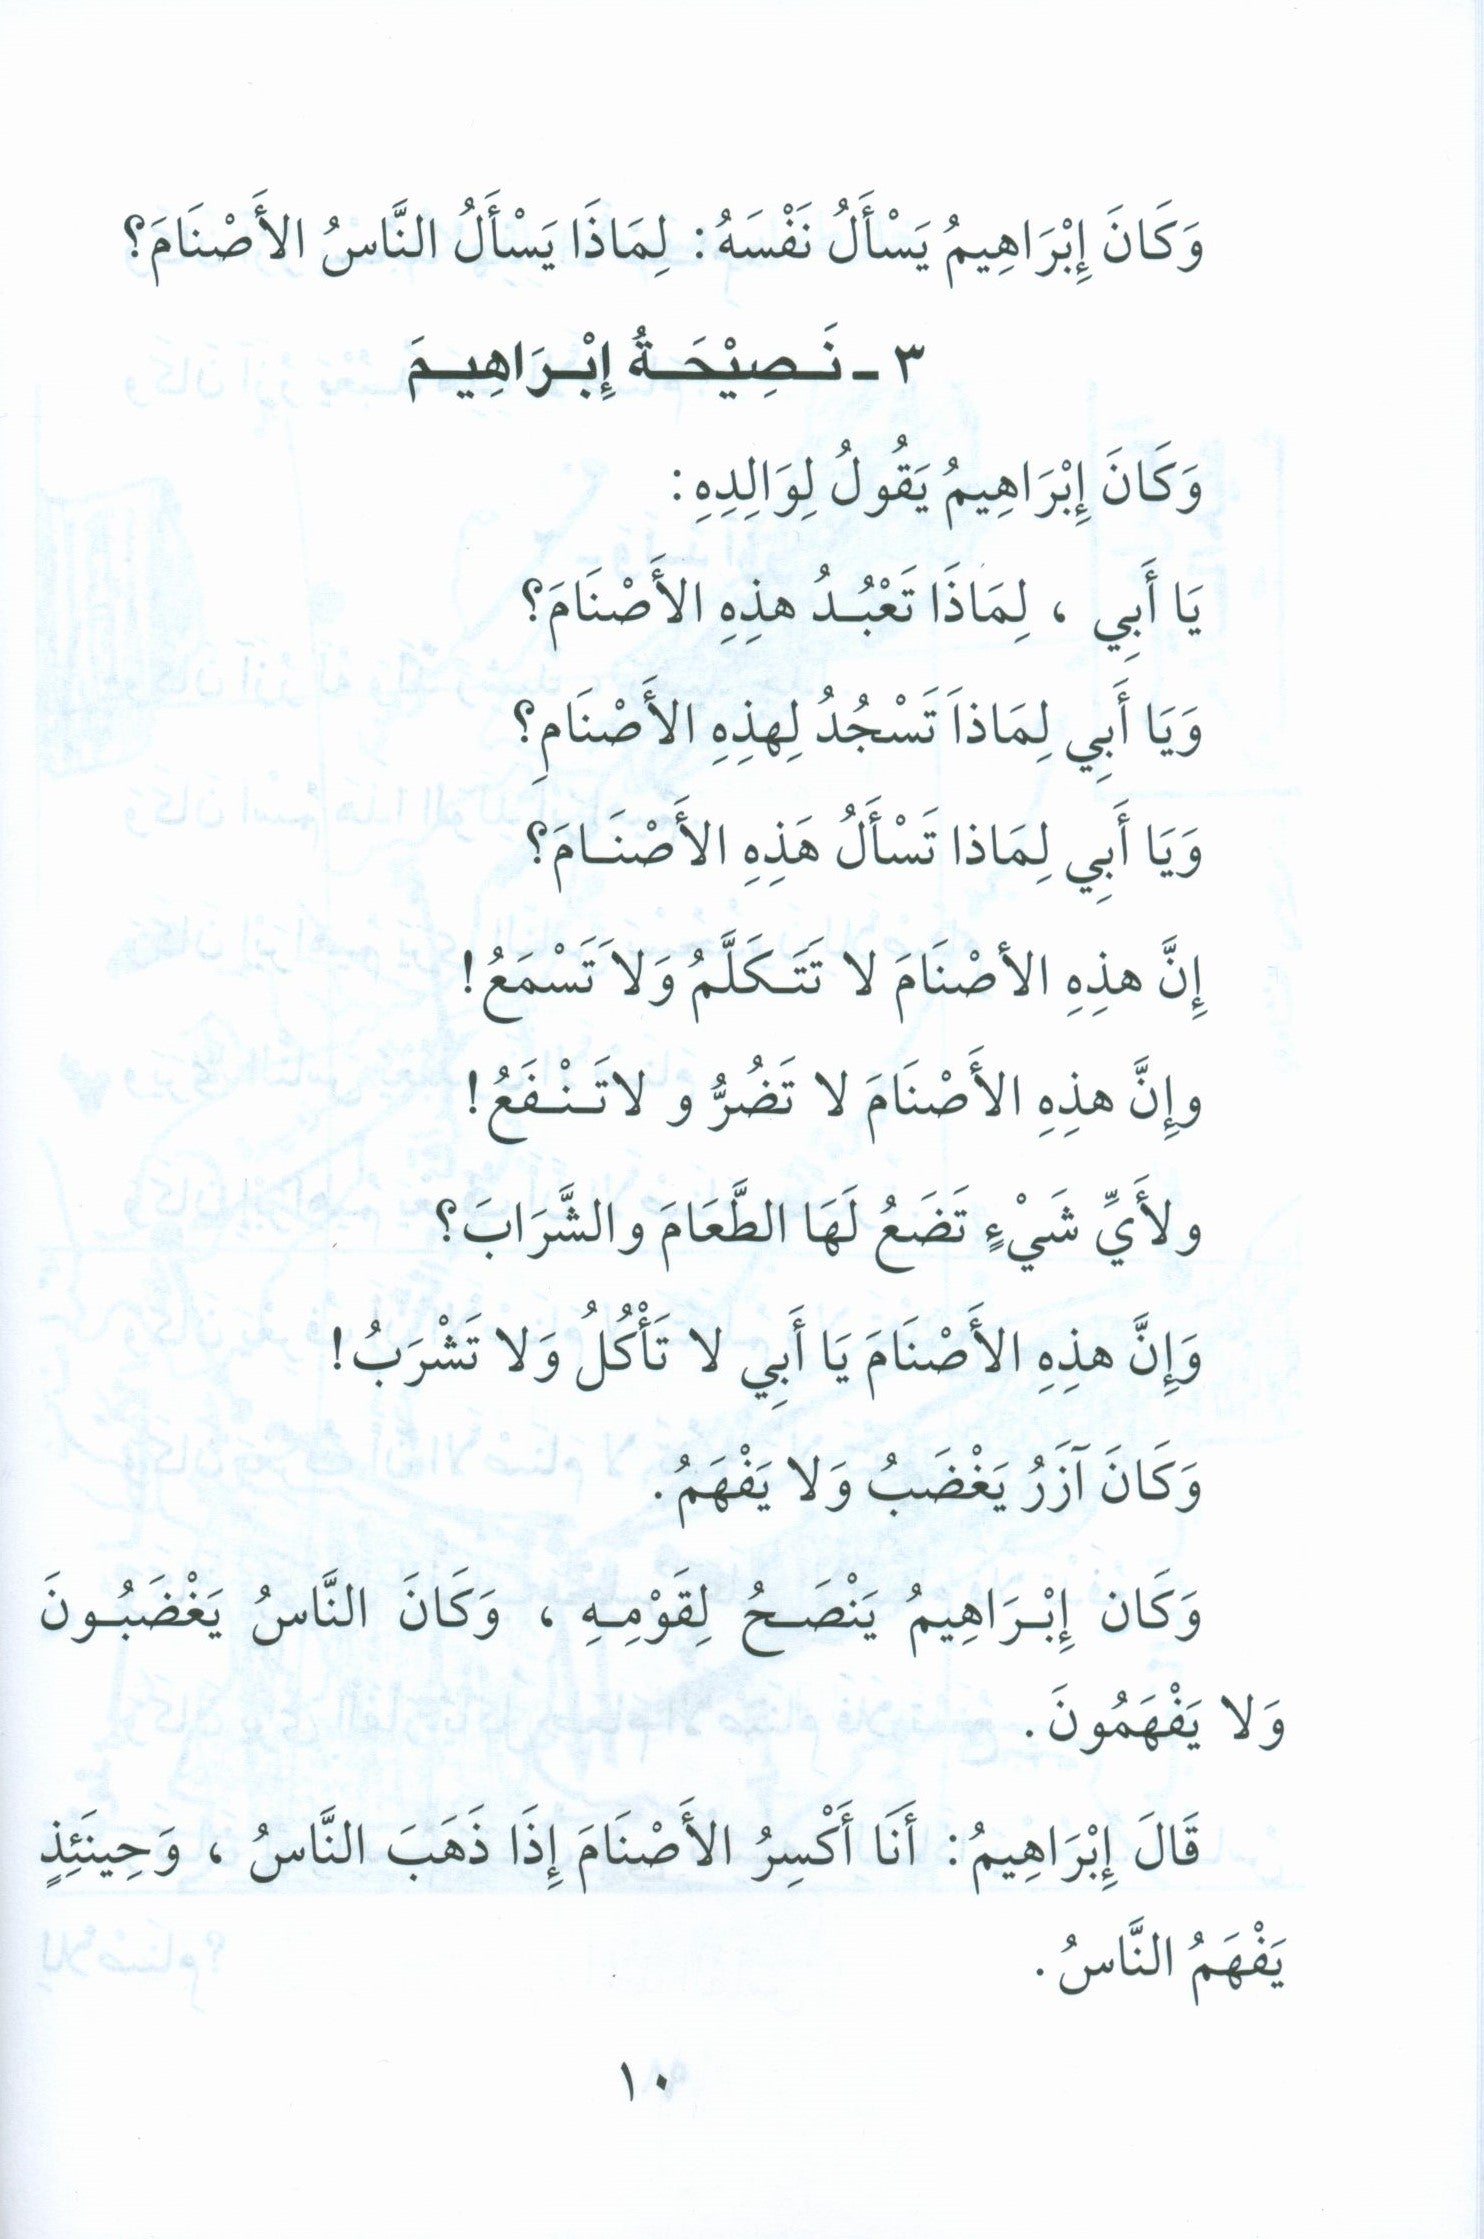 وَكَانَ إِبْرَاهِيمُ يَسْأَلُ نَفْسَهُ: لِمَاذَا يَسْأَلُ النَّاسُ الأَصْنَامَ؟
٣ - نَصِيْحَةُ إِبْرَاهِيمَ
وَكَانَ إِبْرَاهِيمُ يَقُولُ لِوَالِدِهِ:
يَا أَبِي ، لِمَاذَا تَعْبُدُ هذِهِ الأَصْنَامَ؟
وَيَا أَبِي لِمَاذاَ تَسْجُدُ لِهذِهِ الأَصْنَامِ؟
وَيَا أَبِي لِمَاذا تَسْأَلُ هَذِهِ الأَصْنَامَ؟
إِنَّ هذِهِ الأصْنَامَ لا تَتَكَلَّمُ وَلاَ تَسْمَعُ!
وإِنَّ هذِهِ الأَصْنَامَ لا تَضُرُّ و لاتَنْفَعُ!
ولأَيِّ شَيْءٍ تَضَعُ لَهَا الطَّعَامَ والشَّرَابَ؟
وَإِنَّ هذِهِ الأَصْنَامَ يَا أَبِي لا تَأْكُلُ وَلا تَشْرَبُ!
وَكَانَ آزَرُ يَغْضَبُ وَلا يَفْهَمُ.
وَكَان إِبْرَاهِيمُ يَنْصَحُ لِقَوْمِهِ ، وَكَانَ النَّاسُ يَغْضَبُونَ
وَلا يَفْهَمُونَ.
قَالَ إِبْرَاهِيمُ: أَنَا أَكْسِرُ الأَصْنَامَ إِذَا ذَهَبَ النَّاسُ ، وَحِينَئِذٍ
يَفْهَمُ النَّاسُ.
١٠